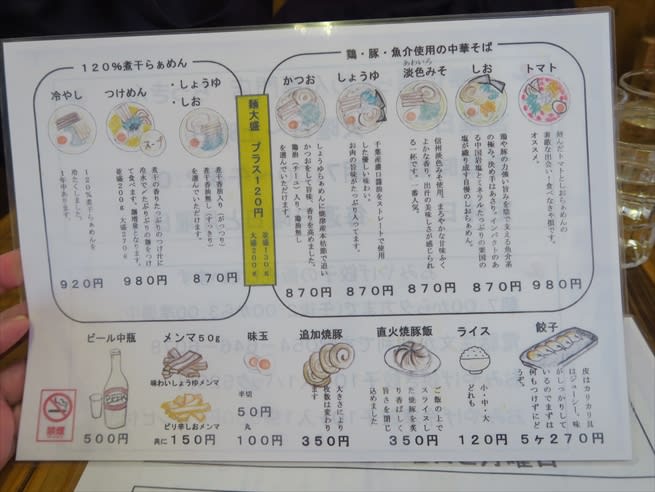 120%煮干らぁめん
冷やし
120%煮干らぁめんを
冷たくしました。
1年中あります。
920円
つけめん
スープ
煮干の香りたっぷりのつけ汁に
冷水でパリパリの麺をつけ
て食べます。麺増量となります。
並盛200g 大盛270g
980円
・しょうゆ
・しお
煮干香油入り(がっつり)
煮干香油無し(すっきり)
を選んでいただけます。
870円
麺大盛 プラス120円
並盛130g
大盛200g
鶏・豚・魚介使用の中華そば
かつお
しょうゆらぁめんに焼津産本枯節で追い
かつおをして旨味、香りを高めました。
鶏油(チーユ)入り、鶏油無し
を選んでいただけます。
870円
しょうゆ
千葉産濃口醤油をストレートで使用
した優しい味わい。
お肉の旨味がたっぷり入ってます。
870円
あわいろ
淡色みそ
信州淡色みそ使用。まろやかな甘味ふく
よかな香り。出汁の美味しさが感じられ
る一杯です。一番人気。
870円
しお
鶏や豚の力強い旨みを陰で支える魚介系
の極み。決め手はあさり。インパクトのあ
る中国岩塩とミネラルたっぷりの粟国の
塩が織り成す自慢のしおらぁめん。
870円
トマト
刻んだトマトとしおらぁめんの
素敵な出会い!食べなきゃ損です。
オススメ。
980円
ビール中瓶
BEER
禁煙
500円
メンマ50g
味わいしょうゆメンマ
ピリ辛しおメンマ
共に150円
味玉
半切
50円
丸
100円
追加焼豚
大きさにより
枚数は変わり
ます
350円
直火焼豚飯
ご飯の上で
スライスし
た焼豚を炙
り香ばしく
旨さを閉じ
込めました
350円
ライス
小・中・大
どれも
120円
餃子
皮はカリカリ具
はジューシー。味
がしっかりして
いるのでまずは
何もつけずにど
うぞ。
5ヶ270円
月曜日